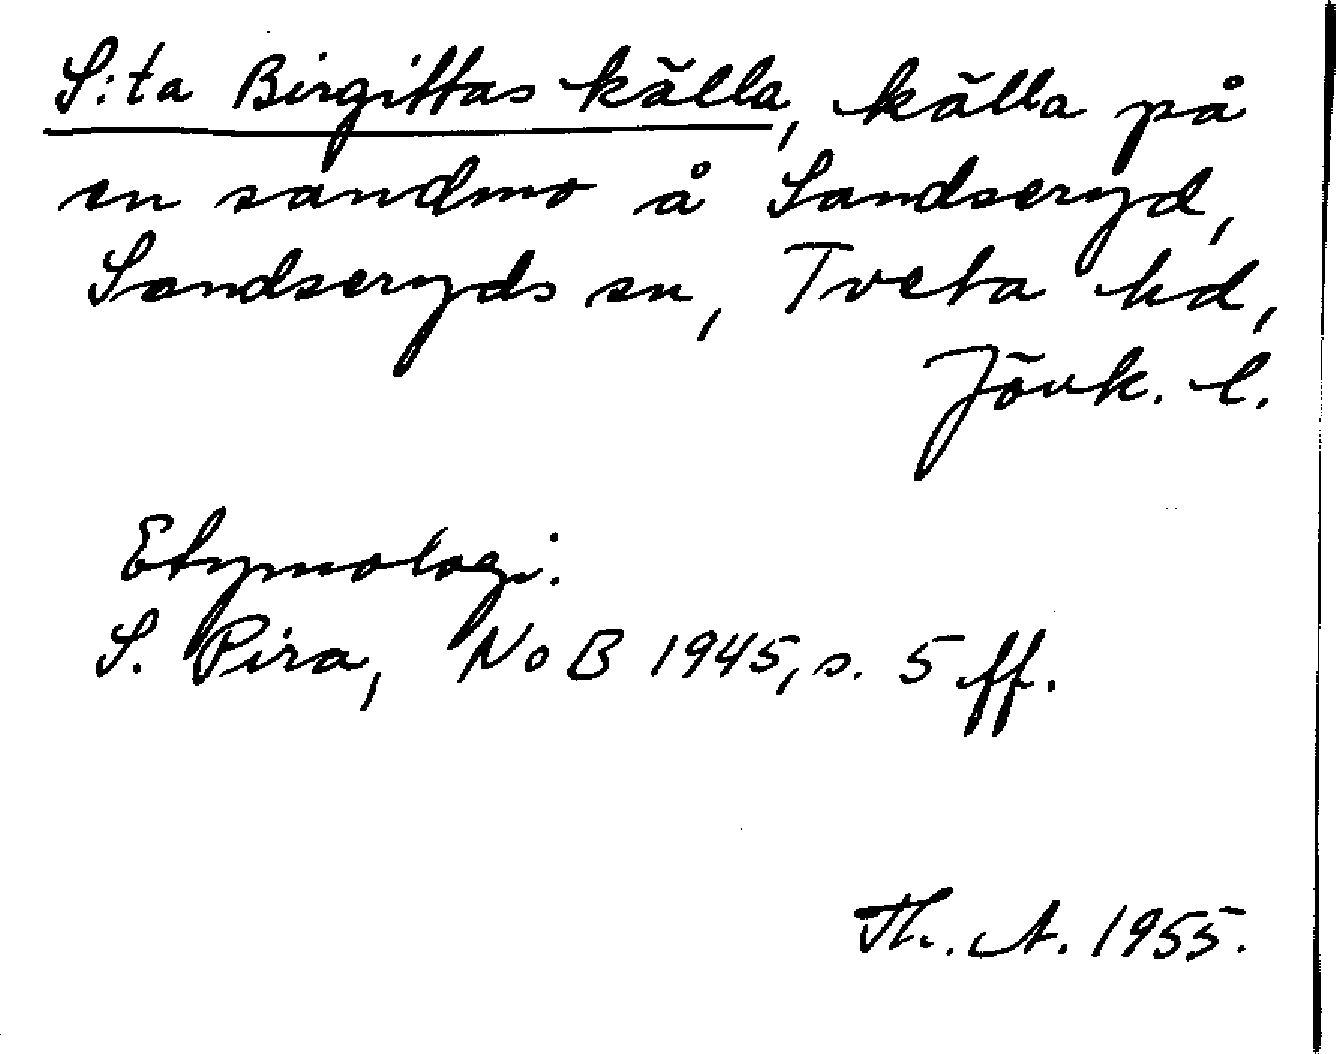 S:ta Birgittas källa, källa på
en sandmo å Sandseryd,
Sandseryds sn, Tveta hd,
Jönk. l.
Etymologi:
S. Pira, NoB 1945, s. 5 ff.
Th. A. 1955.